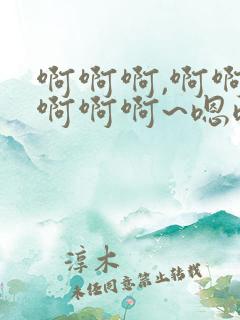 啊啊啊,啊啊
啊啊啊~嗯
淳木
未经同意禁止转载